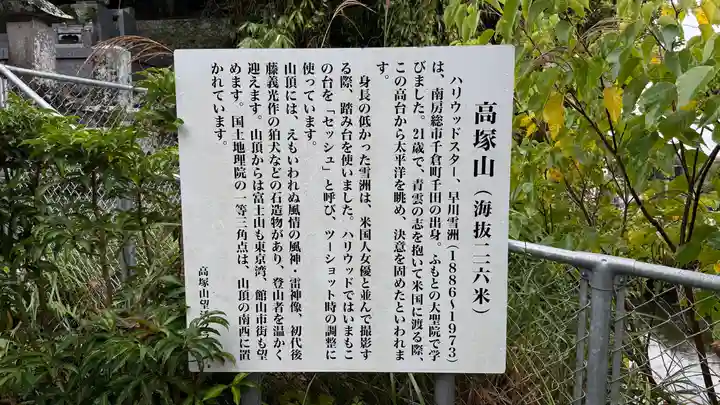 高塚山(海抜二一六米)
ハリウッドスター、早川雪洲(1886〜1973)
は、南房総市千倉町千田の出身。ふもとの大聖院で学
びました。21歳で、青雲の志を抱いて米国に渡る際、
この高台から太平洋を眺め、決意を固めたといわれま
す。
身長の低かった雪洲は、米国人女優と並んで撮影す
る際、踏み台を使いました。ハリウッドではいまもこ
の台を「セッシュ」と呼び、ツーショット時の調整に
使っています。
山頂には、えもいわれぬ風情の風神・雷神像、初代後
藤義光作の狛犬などの石造物があり、登山者を温かく
迎えます。山頂からは富士山も東京湾、館山市街も望
めます。国土地理院の一等三角点は、山頂の南西に置
かれています。
高塚山望